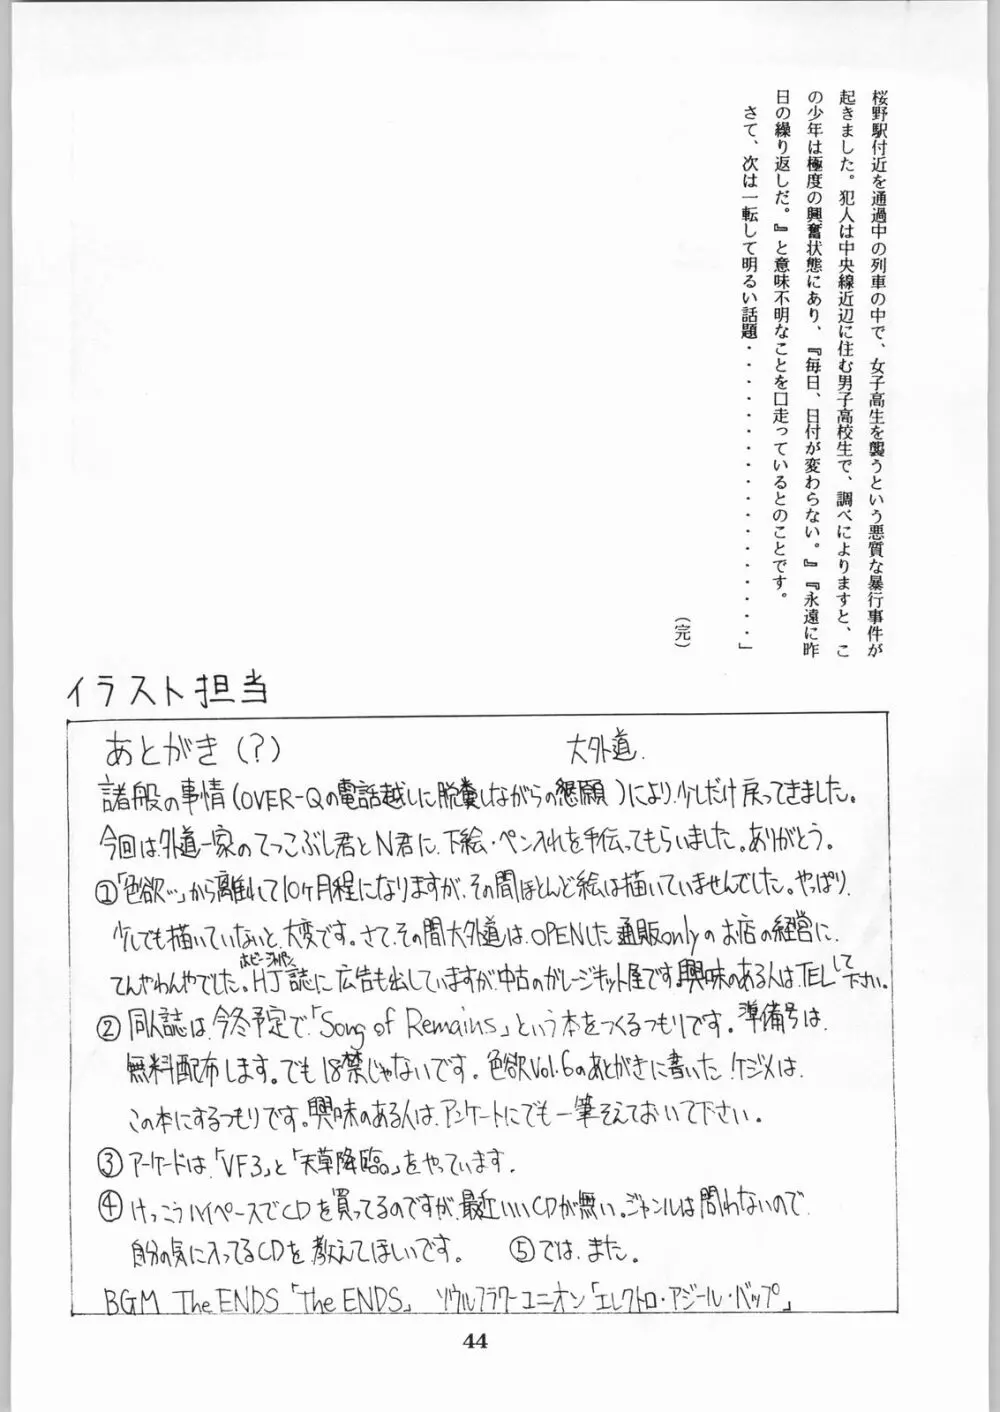 桜野駅付近を通過中の列車の中で、女子高生を襲うという悪質な暴行事件が
起きました。犯人は中央線近辺に住む男子高校生で、調べによりますと、こ
の少年は極度の興奮状態にあり、『毎日、日付が変わらない。』『永遠に昨
日の繰り返しだ。』と意味不明なことを口走っているとのことです。
さて、次は一転して明るい話題・・・・・・・・・・・・・・・・・・・」
(完)
イラスト担当
あとがき(?) 大外道.
諸般の事情(OVER-Qの電話越しに脱糞しながらの懇願)により、少しだけ戻ってきました。
今回は、外道一家のてっこぶし君とN君に、下絵・ペン入れを手伝ってもらいました。ありがとう。
①「色欲…」から離れて10ヶ月程になりますが、その間ほとんど絵は描いていませんでした。やっぱり、
少しでも描いていないと、大変です。さて、その間大外道は、OPENした通販onlyのお店の経営に、
てんやわんやでした。HJ誌に広告も出していますが、中古のガレージキット屋です。興味のある人は、TELして下さい。
ホビージャパン
②同人誌は、今冬予定で、「Song of Remains」という本をつくるつもりです。準備号は、
無料配布します。でも18禁じゃないです。色欲Vol.6のあとがきに書いた、ケジメは、
この本にするつもりです。興味のある人は、アンケートにでも一筆そえておいて下さい。
③アーケードは、「VF3」と「天草降臨。」をやっています.
④けっこうハイペースでCDを買ってるのですが、最近いいCDが無い。ジャンルは問わないので、
自分の気に入ってるCDを、教えてほしいです。 ⑤では、また。
BGM The ENDS「the ENDS」 ソウルフラワーユニオン「エレクトロ・アジール・バップ」
44